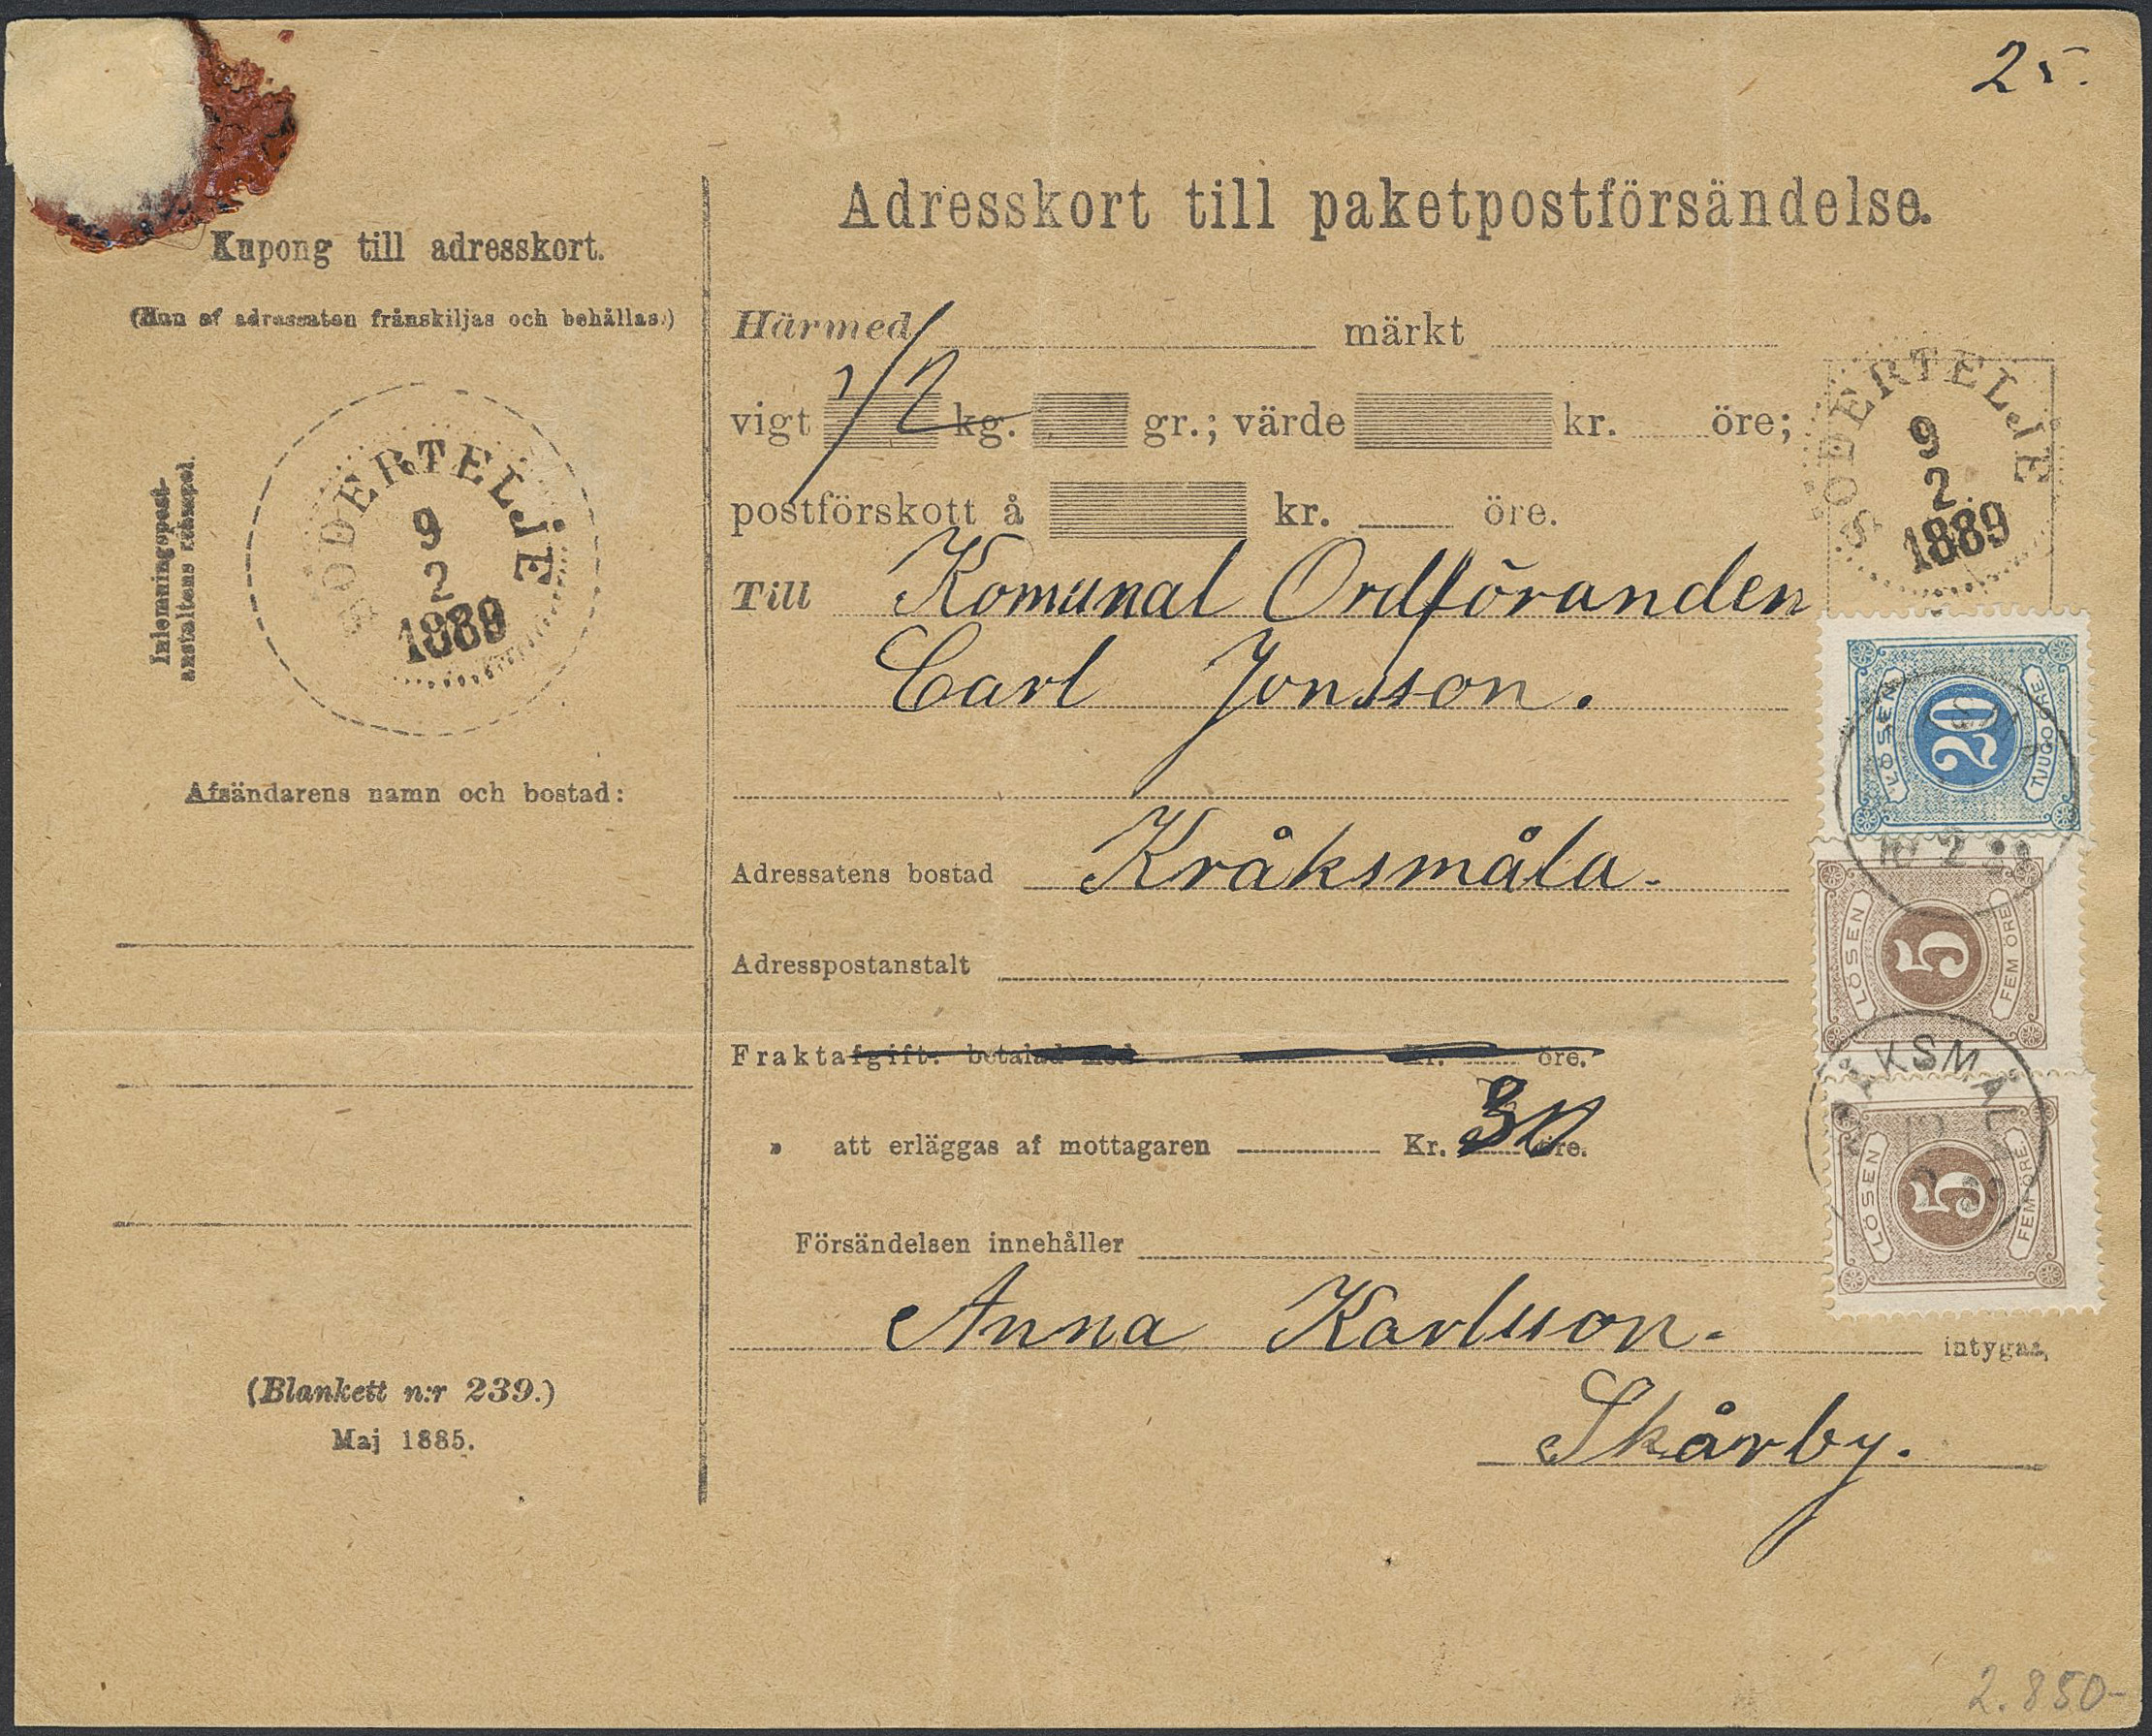 25.
Adresskort till paketpostförsändelse.
Kupong till adresskort.
(Kan af adressaten frånskiljas och behållas.)
Inlemningspost-
anstaltens stämpel.
SÖDERTELJE
9
2
1889
Afsändarens namn och bostad:
(Blankett n:r 239.)
Maj 1885.
Härmed märkt
vigt 1/2 kg. gr.; värde kr. öre;
postförskott å kr. öre.
SÖDERTELJE
9
2
1889
Till Komunal Ordföranden
Carl Jonsson.
Adressatens bostad Kråksmåla.
Adresspostanstalt
Fraktafgift: betalad med Kr. öre.
" att erläggas af mottagaren Kr. 30 öre.
Försändelsen innehåller
Anna Karlsson. intygas,
Skårby.
LÖSEN
20
TJUGO ÖRE
10 2
LÖSEN
5
FEM ÖRE
KRÅKSMÅLA
LÖSEN
5
FEM ÖRE
2.850-